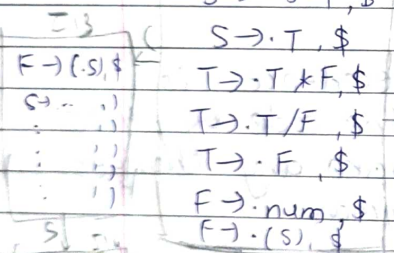 = 3
F → (.S), $
S → .. , )
: , )
: , )
. , )
S
(
S → . T , $
T → . T * F, $
T → . T / F , $
T → . F , $
F → . num , $
F → . (S) , $